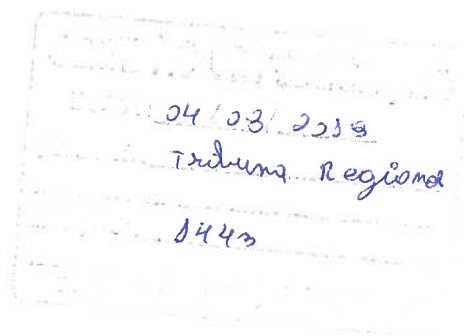 04/03/2019
Tribuna Regional
1443